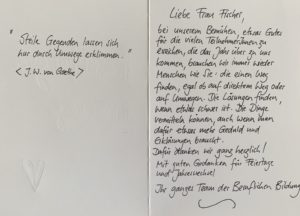 "Steile Gegenden lassen sich
nur durch Umwege erklimmen."
< J.W. von Goethe >
Liebe Frau Fischer,
bei unserem Bemühen, etwas Gutes
für die vielen Teilnehmer:innen zu
erreichen, die das Jahr über zu uns
kommen, brauchen wir immer wieder
Menschen wie Sie - die einen Weg
finden, egal ob auf direktem Weg oder
auf Umwegen. Die Lösungen finden,
wenn etwas schwer ist. Die Dinge
vermitteln können, auch wenn Ihnen
dafür etwas mehr Geduld und
Erklärungen braucht.
Dafür danken wir ganz herzlich!
Mit guten Gedanken für Feiertage
und Jahreswechsel
Ihr ganzes Team der Beruflichen Bildung